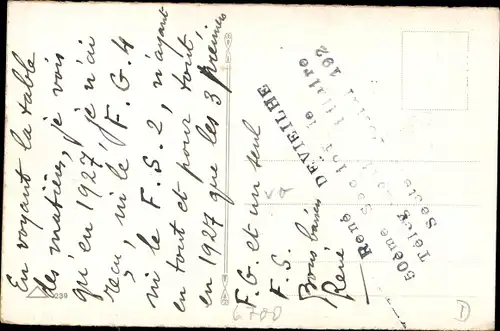 En voyant la table
des matières, je vois
qu'en 1927, je n'ai
reçu, ni le F.G. 4
ni le F.S. 2, n'ayant
en tout et pour tout,
en 1927 que les 3 premiers
F.G. et un seul
F.S.
René
René DEVIEILHE
50ème
192
239
6700